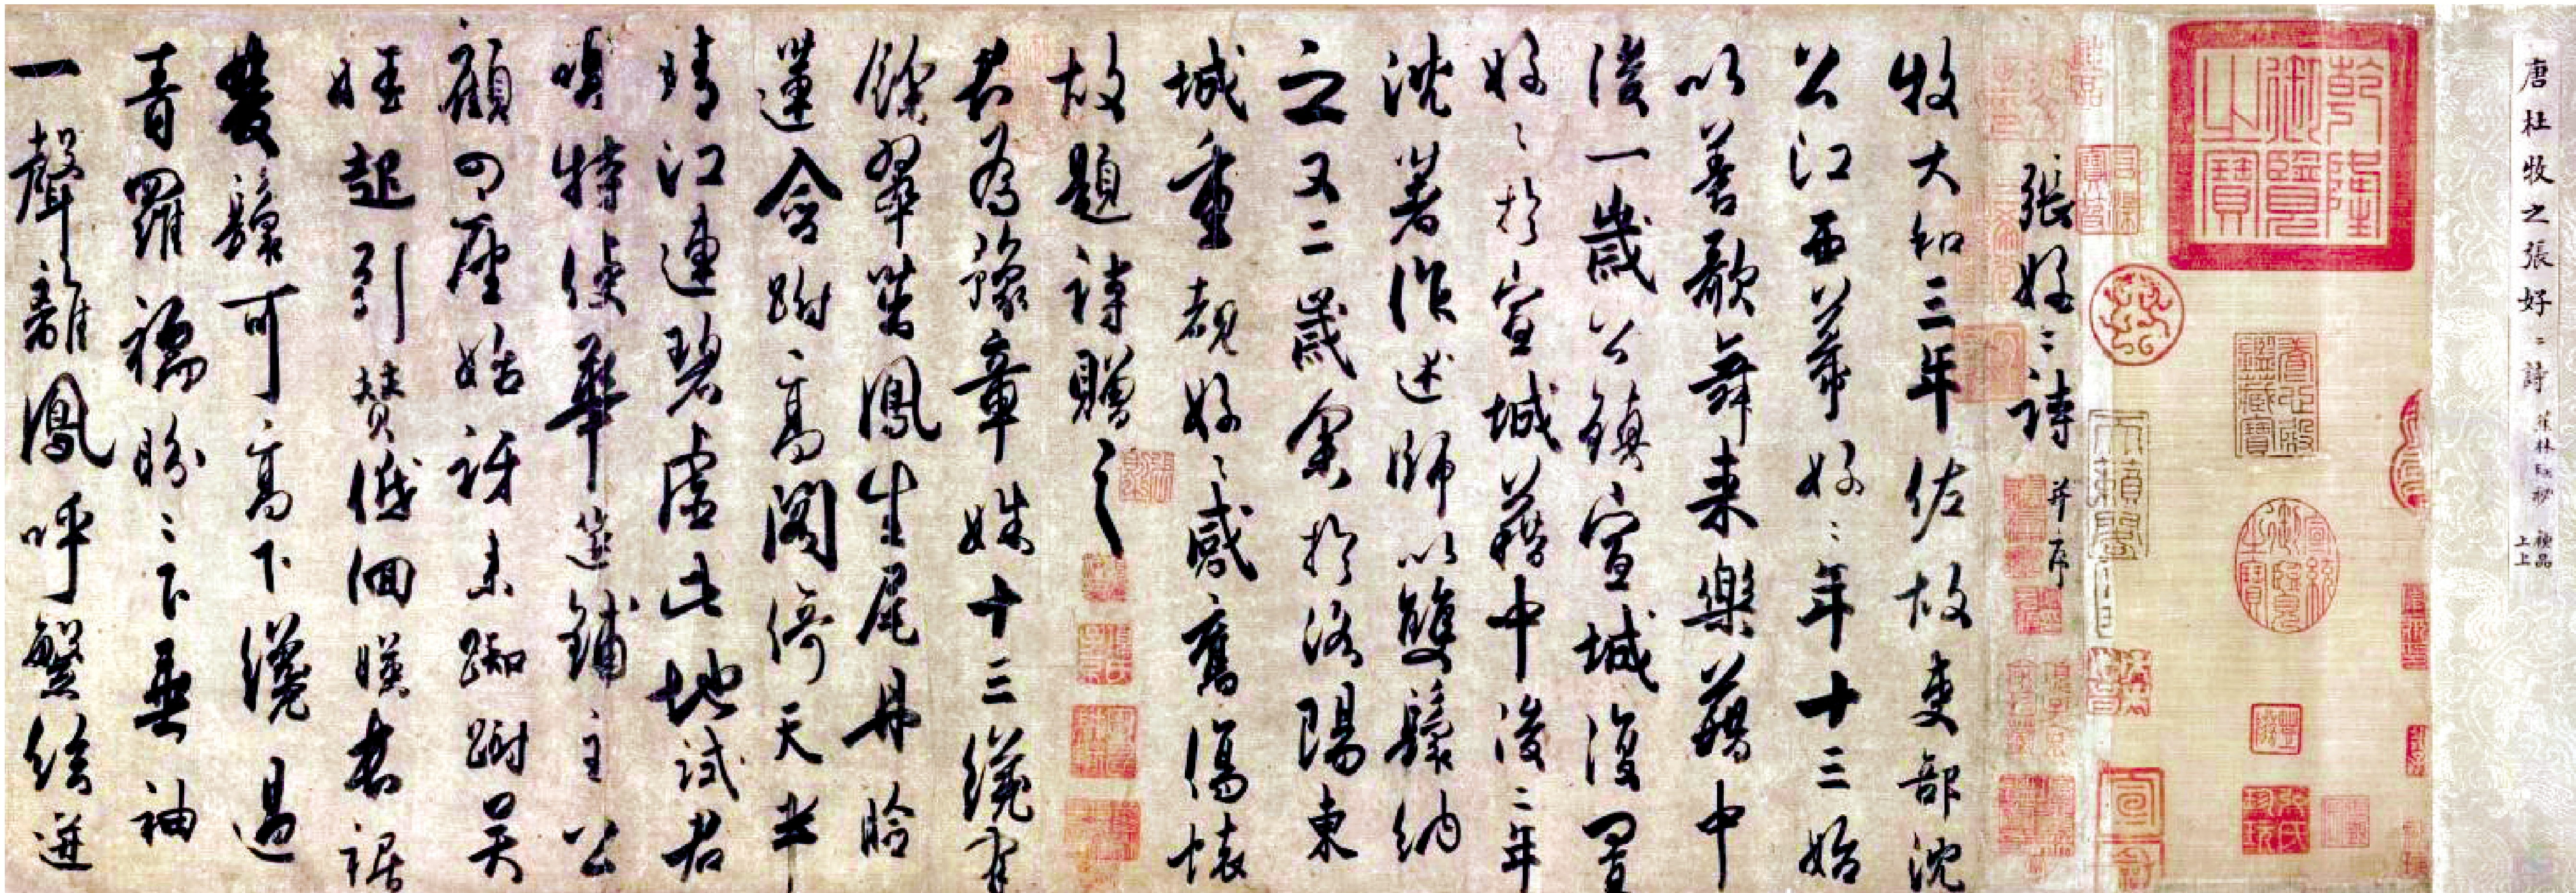 唐杜牧之張好〻詩
神品
上上
乾隆御覽之寶
養心殿鑑藏寶
宣統御覽之寶
天籟閣
張好〻詩 并序
牧大和三年佐故吏部沈
公江西幕好〻年十三始
以善歌舞來樂藉中
後一歲公鎮宣城復置
好〻於宣城藉中後二年
沈著作述師以雙鬟納
之又二歲余於洛陽東
城重覩好〻感舊傷懷
故題詩贈之
君為豫章姝十三纔有
餘翠茁鳳生尾丹臉
蓮含跗高閣倚天半
晴江連碧虛此地試君
唱特使華筵鋪主公
顧四座始訝來踟躕吳
娃起引贊低佪暎長裾
雙鬟可高下纔過
青羅襦盼〻下垂袖
一聲離鳳呼繁絃迸